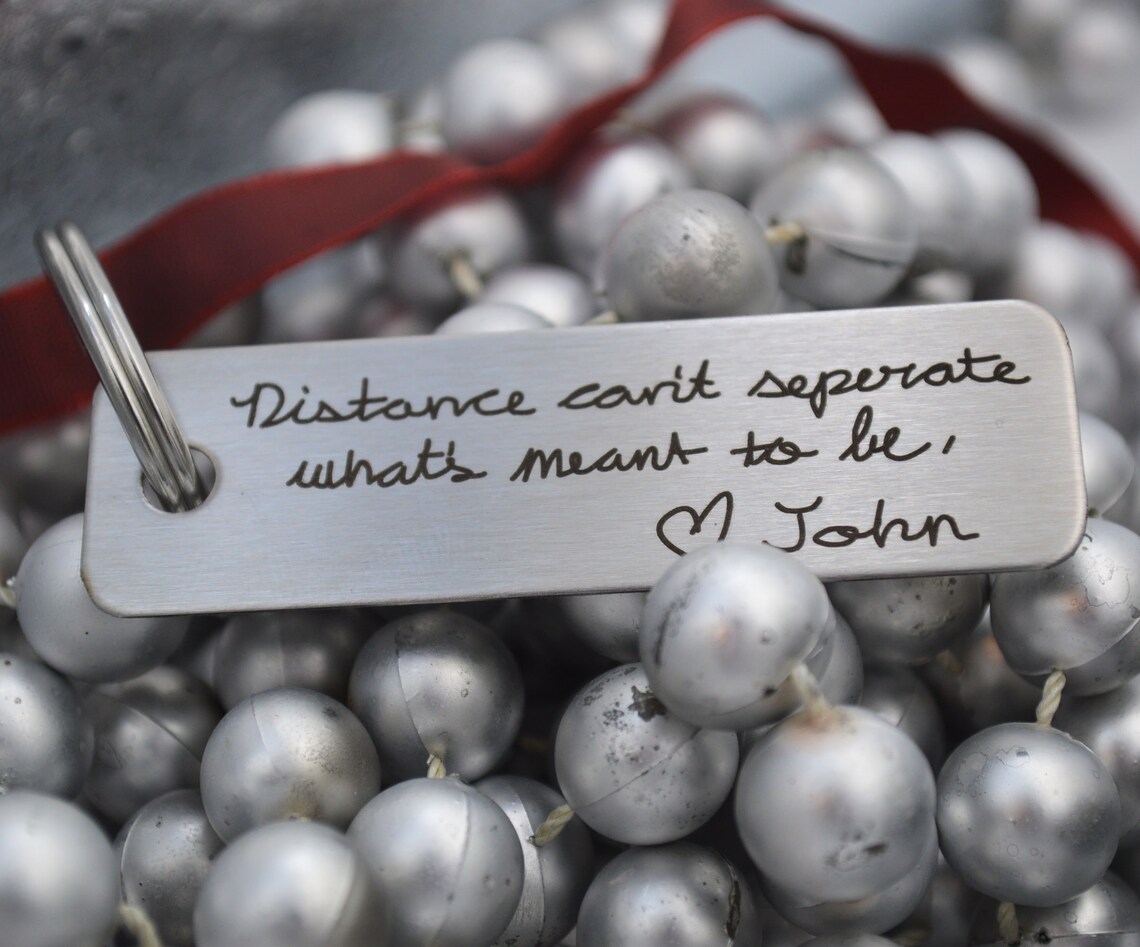 Distance can't seperate
what's meant to be,
♡ John